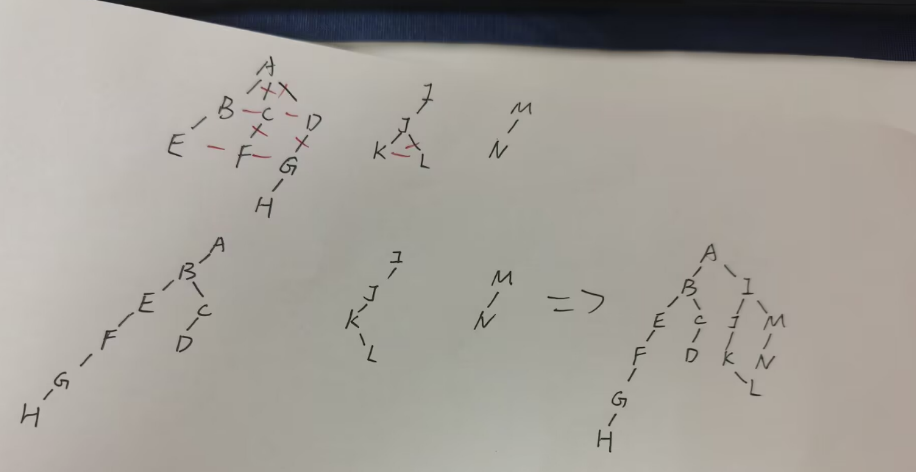 A
B C D
E F G
H
I
J
K L
M
N
A
B
E C
F D
G
H
I
J
K
L
M
N
=>
A
B I
E C J M
F D K N
L
G
H